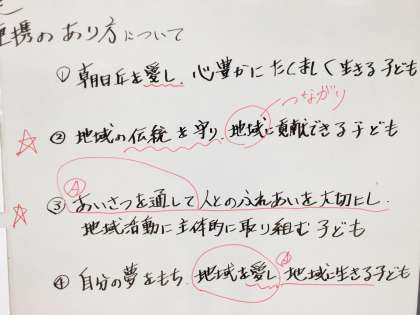 連携のあり方について
① 朝日丘を愛し、心豊かにたくましく生きる子ども
つながり
☆ ② 地域の伝統を守り、地域に貢献できる子ども
Ⓐ
☆ ③ あいさつを通して人とのふれあいを大切にし、
地域活動に主体的に取り組む子ども
④ 自分の夢をもち、地域を愛し地域に生きる子ども